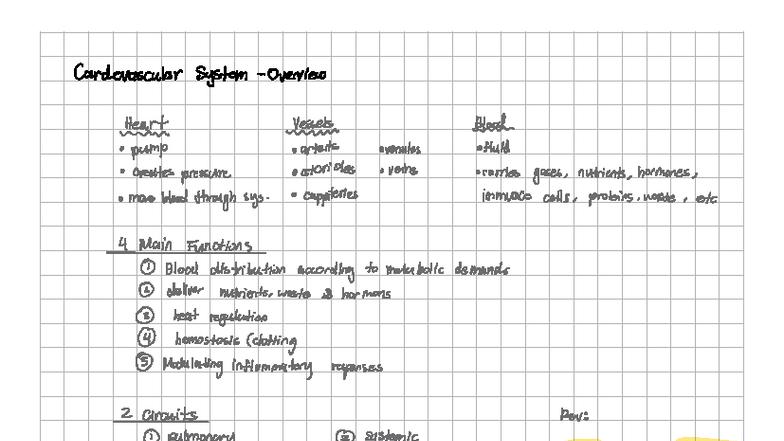 Cardovascular System - Overview
Heart Vessels Blood
• pump • arteris • venules • fluid
• creates pressure • atorioles • veins • carries gases, nutrients, hormones,
• move blood through sys. • cappileries immune cells, proteins, waste, etc
4 Main Functions
① Blood distribution according to metabolic demands
② deliver nutrients, waste & hormons
③ heat regulation
④ hemostasis (clotting
⑤ Modulating inflammatory reponses
2 Circuits Rev:
① Pulmonary ② Systemic